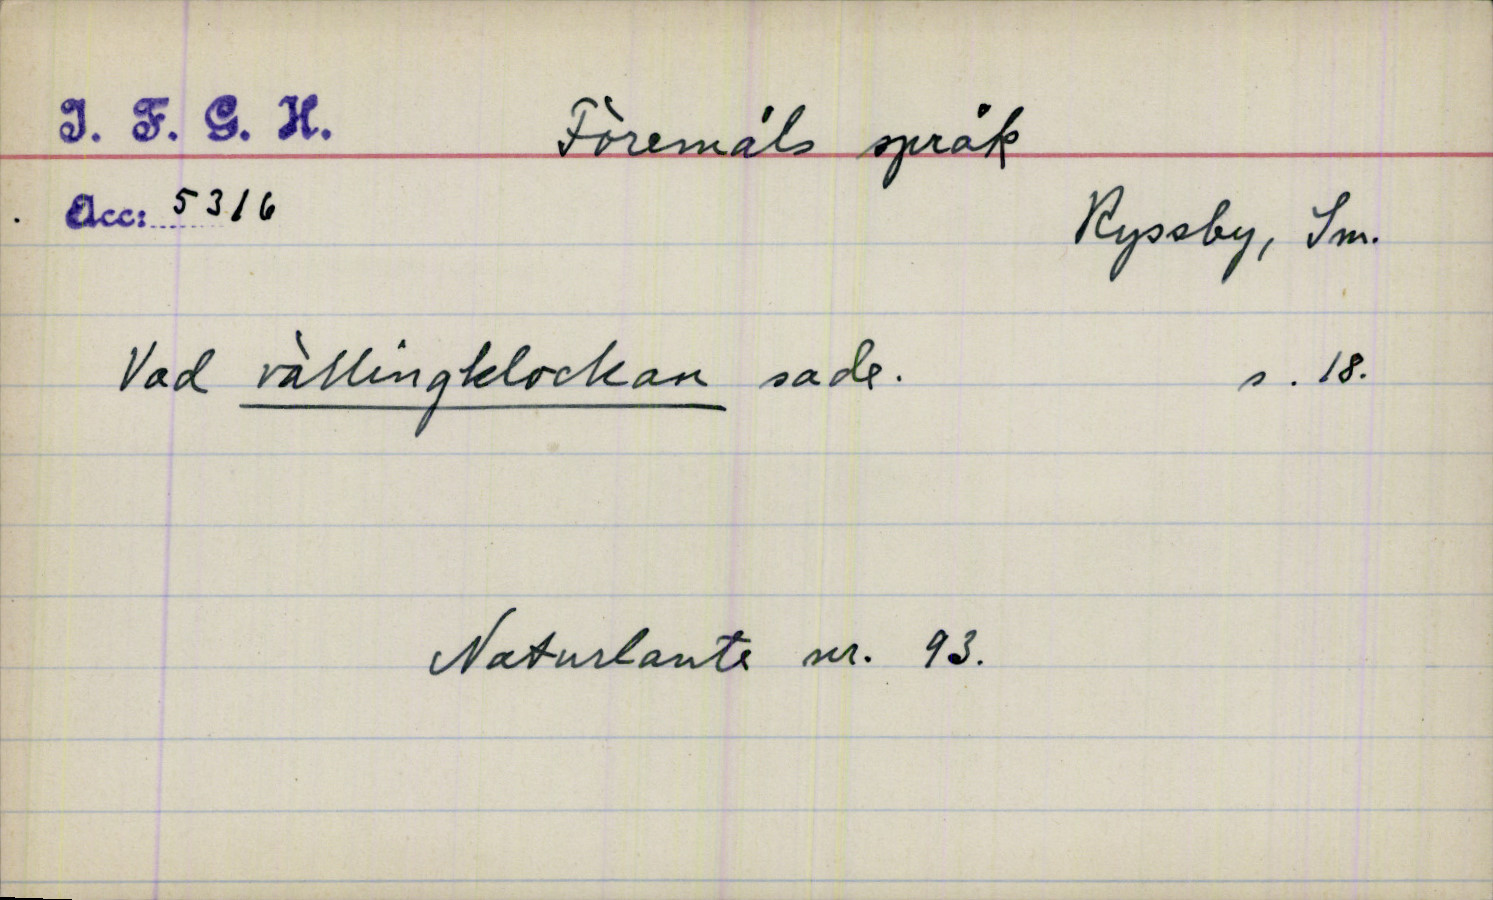 I. F. G. H.
Föremåls språk
Acc: 5316
Ryssby, Sm.
Vad vällingklockan sade. s. 18.
Naturlaute nr. 93.